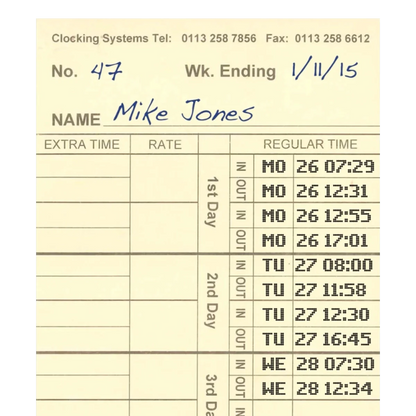 Clocking Systems Tel: 0113 258 7856 Fax: 0113 258 6612
No. 47 Wk. Ending 1/11/15
NAME Mike Jones
EXTRA TIME RATE REGULAR TIME
1st Day
IN MO 26 07:29
OUT MO 26 12:31
IN MO 26 12:55
OUT MO 26 17:01
2nd Day
IN TU 27 08:00
OUT TU 27 11:58
IN TU 27 12:30
OUT TU 27 16:45
3rd Da
IN WE 28 07:30
OUT WE 28 12:34
IN